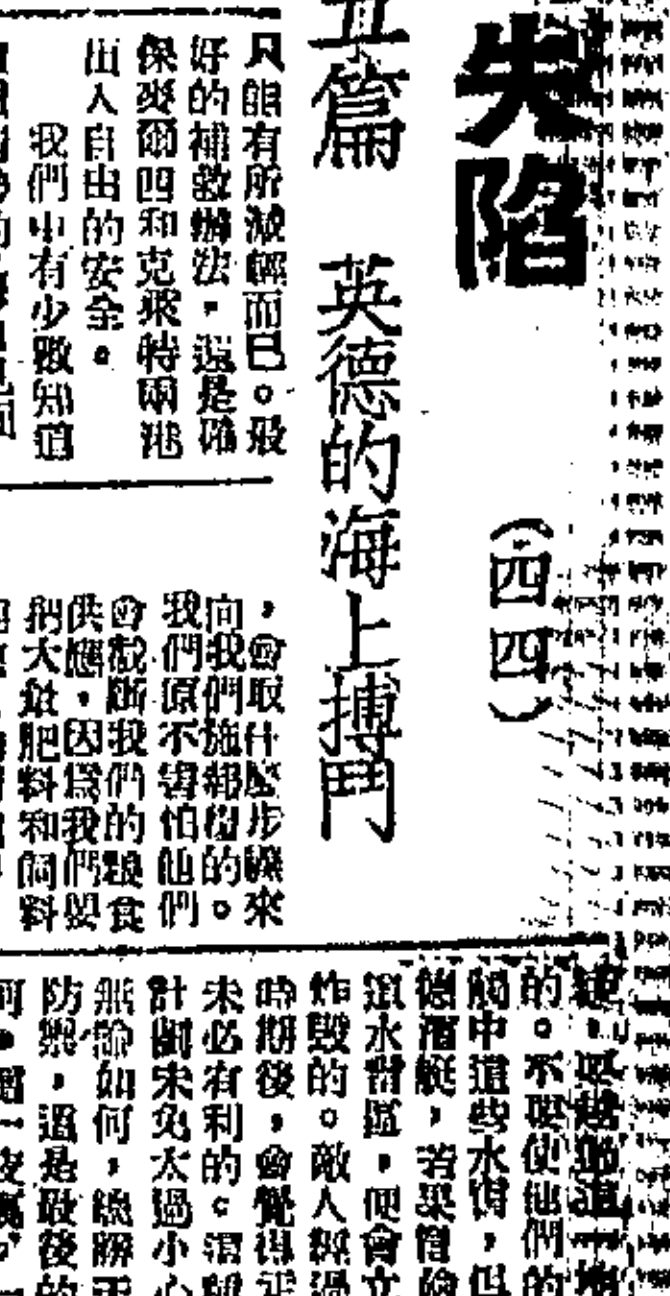 失陷
（四四）
五篇　英德的海上搏鬥
只能有所減輕而已。最
好的補救辦法，還是確
保麥爾四和克飛特兩港
出入自由的安全。
我們中有少數知道
，會取什麼步驟來
向我們施報復的。
我們原不害怕他們
會截斷我們的糧食
供應，因為我們要
把大批肥料和飼料
的。不要使他們的
觸中這些水雷，但
德潛艇，若果冒險
這水雷區，便會立
炸毀的。敵人經過
時期後，會覺得正
未必有利的。這種
計劃未免太過小心
無論如何，總算正
防禦，這是最後的